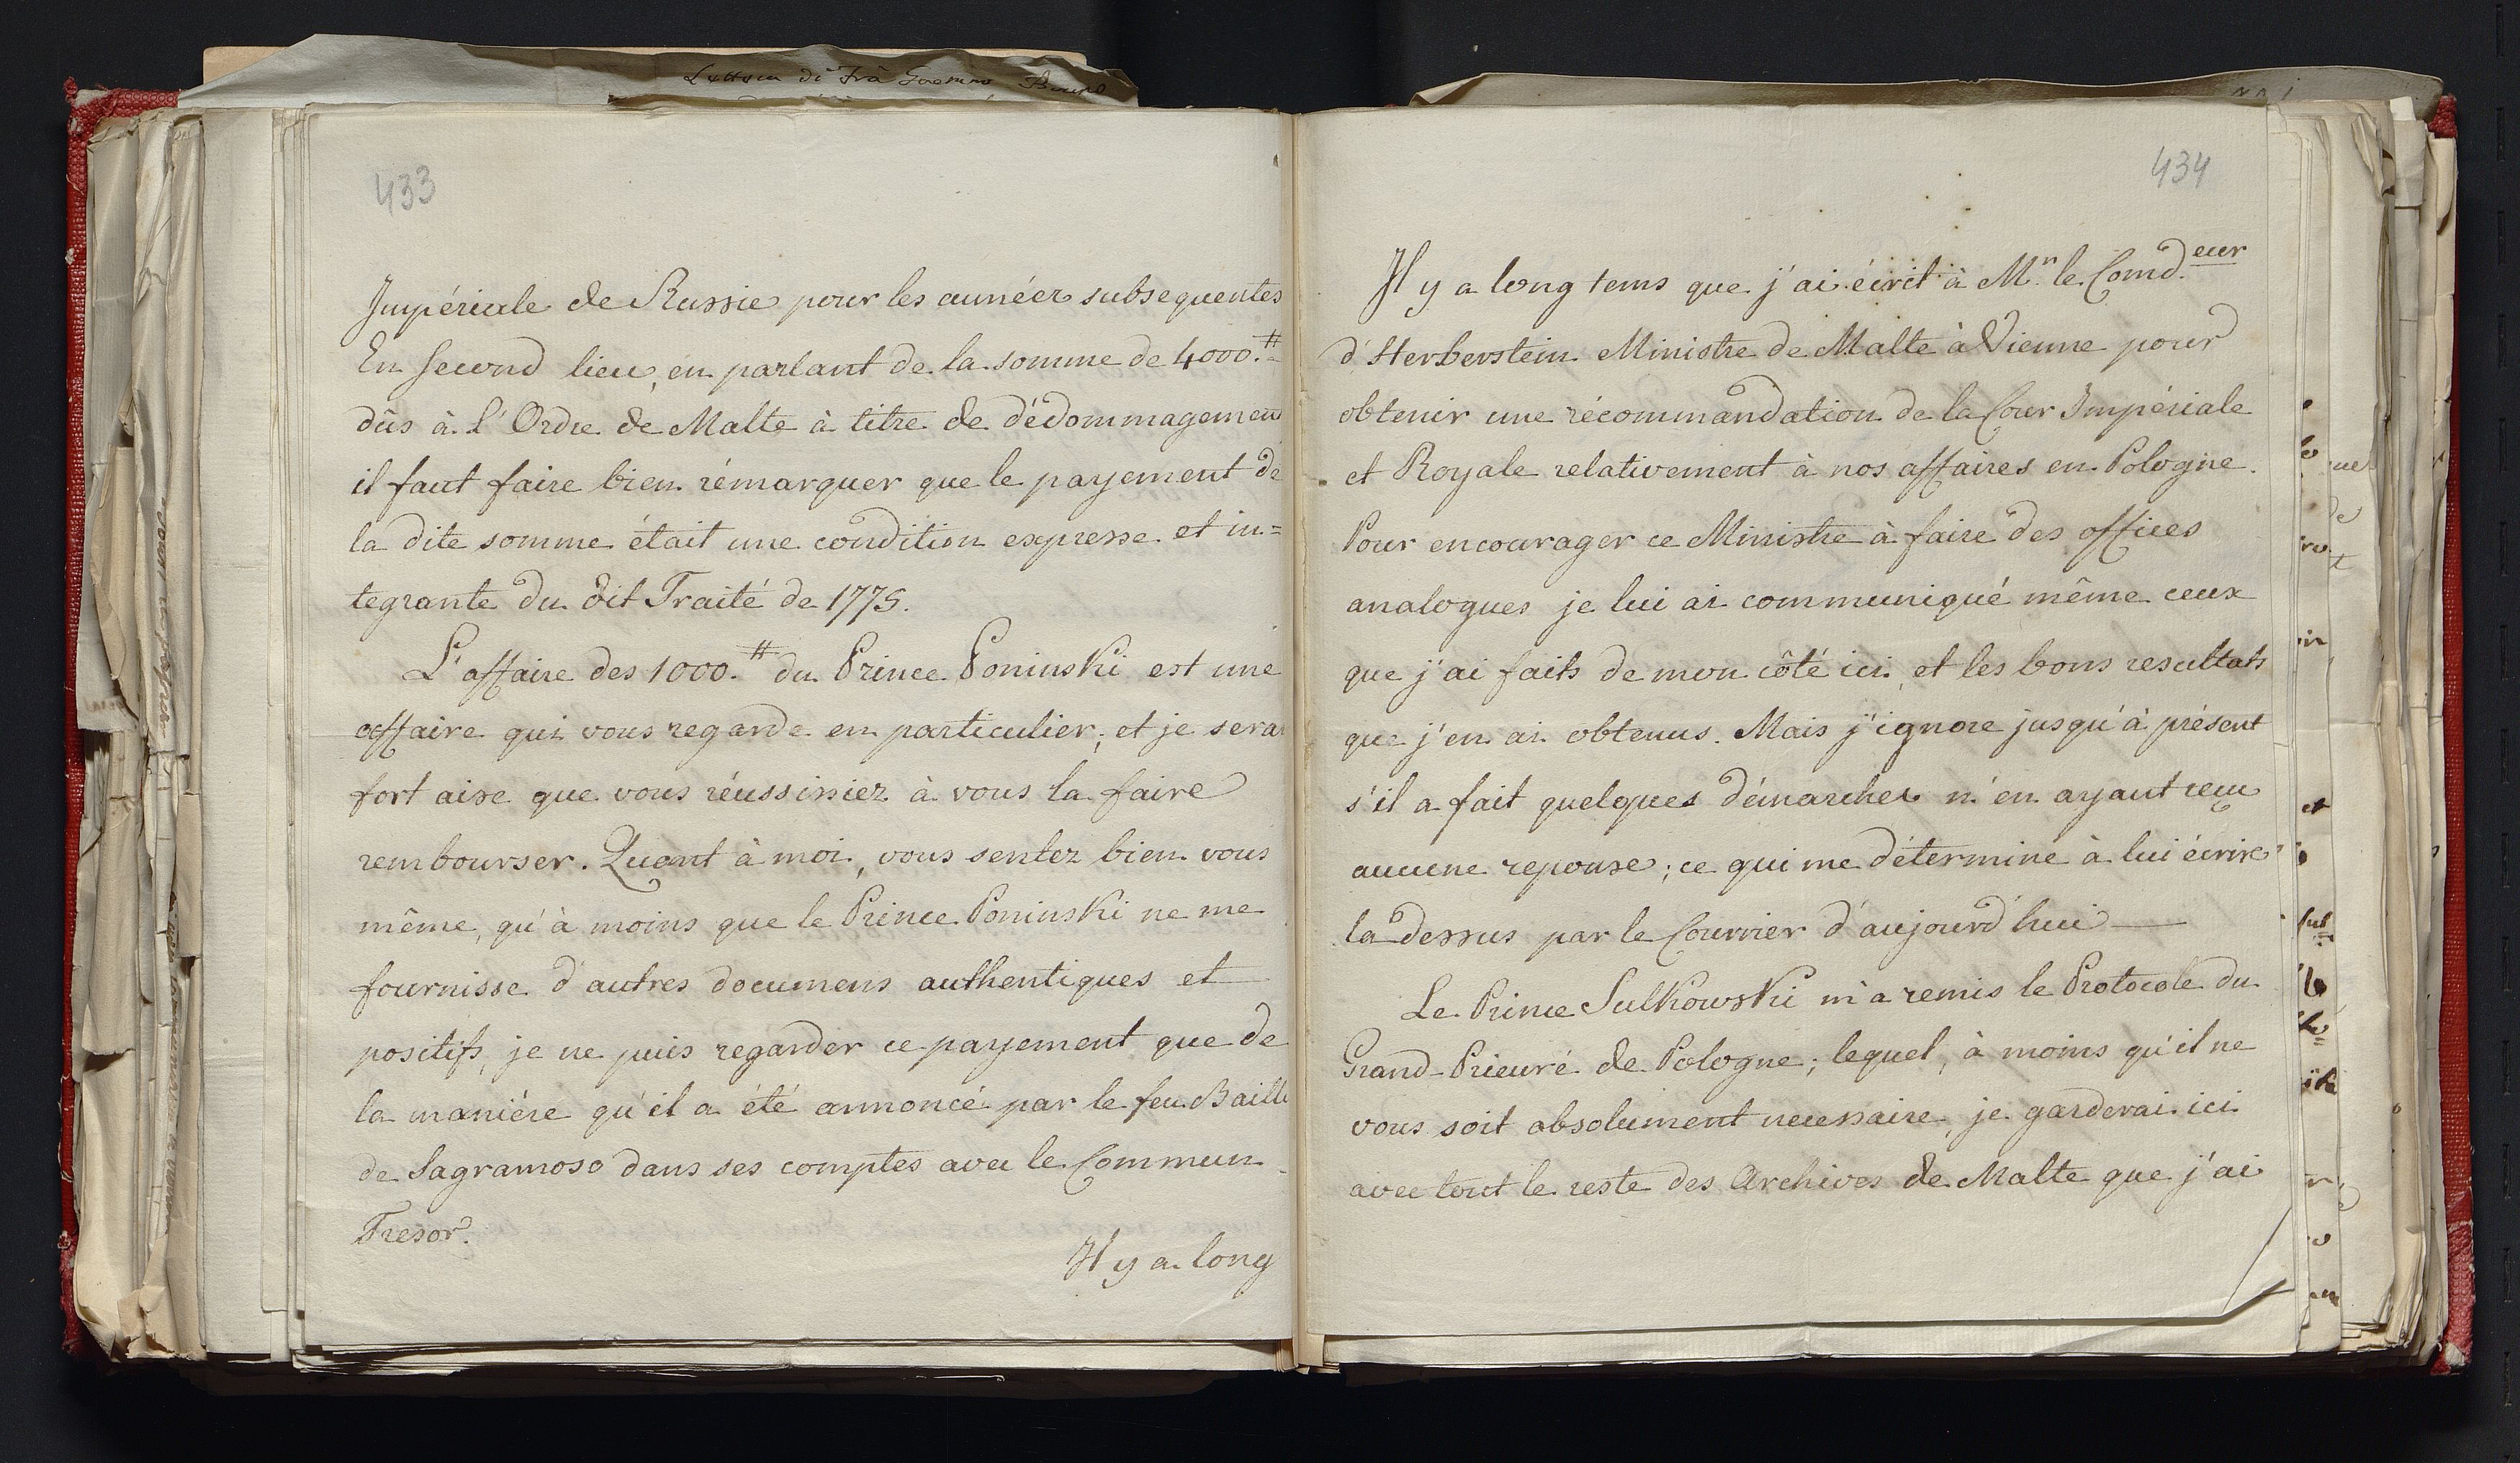 Lettera di Frà Gaetano Bruno
433
Impériale de Russie pour les années subsequentes
En second lieu, en parlant de la somme de 4000.#
dûs à l'Ordre de Malte à titre de dédommagemen
il faut faire bien rémarquer que le payement de
la dite somme était une condition expresse et in=
tegrante du dit Traité de 1775.
L'affaire des 1000.# du Prince Poninski est une
affaire qui vous regarde en particulier; et je serai
fort aise que vous réussissiez à vous la faire
rembourser. Quant à moi, vous sentez bien vous
même, qu'à moins que le Prince Poninski ne me
fournisse d'autres documens authentiques et
positifs, je ne puis regarder ce payement que de
la maniére qu'il a été annoncé par le feu Bailli
de Sagramoso dans ses comptes avec le Commun
Tresor.
Il y a long
434
Il y a long tems que j'ai écrit à Mr. le Comd.eur
d'Herberstein Ministre de Malte à Vienne pour
obtenir une récommandation de la Cour Impériale
et Royale relativement à nos affaires en Pologne.
Pour encourager ce Ministre à faire des offices
analogues je lui ai communiqué même ceux
que j'ai faits de mon côté ici, et les bons resultats
que j'en ai obtenus. Mais j'ignore jusqu'à présent
s'il a fait quelques démarches n'en ayant reçu
aucune reponse; ce qui me détermine à lui écrire
la dessus par le Courrier d'aujourd'hui —
Le Prince Sulkowski m'a remis le Protocole du
Grand-Prieuré de Pologne; lequel, à moins qu'il ne
vous soit absolument necessaire, je garderai ici
avec tout le reste des Archives de Malte que j'ai